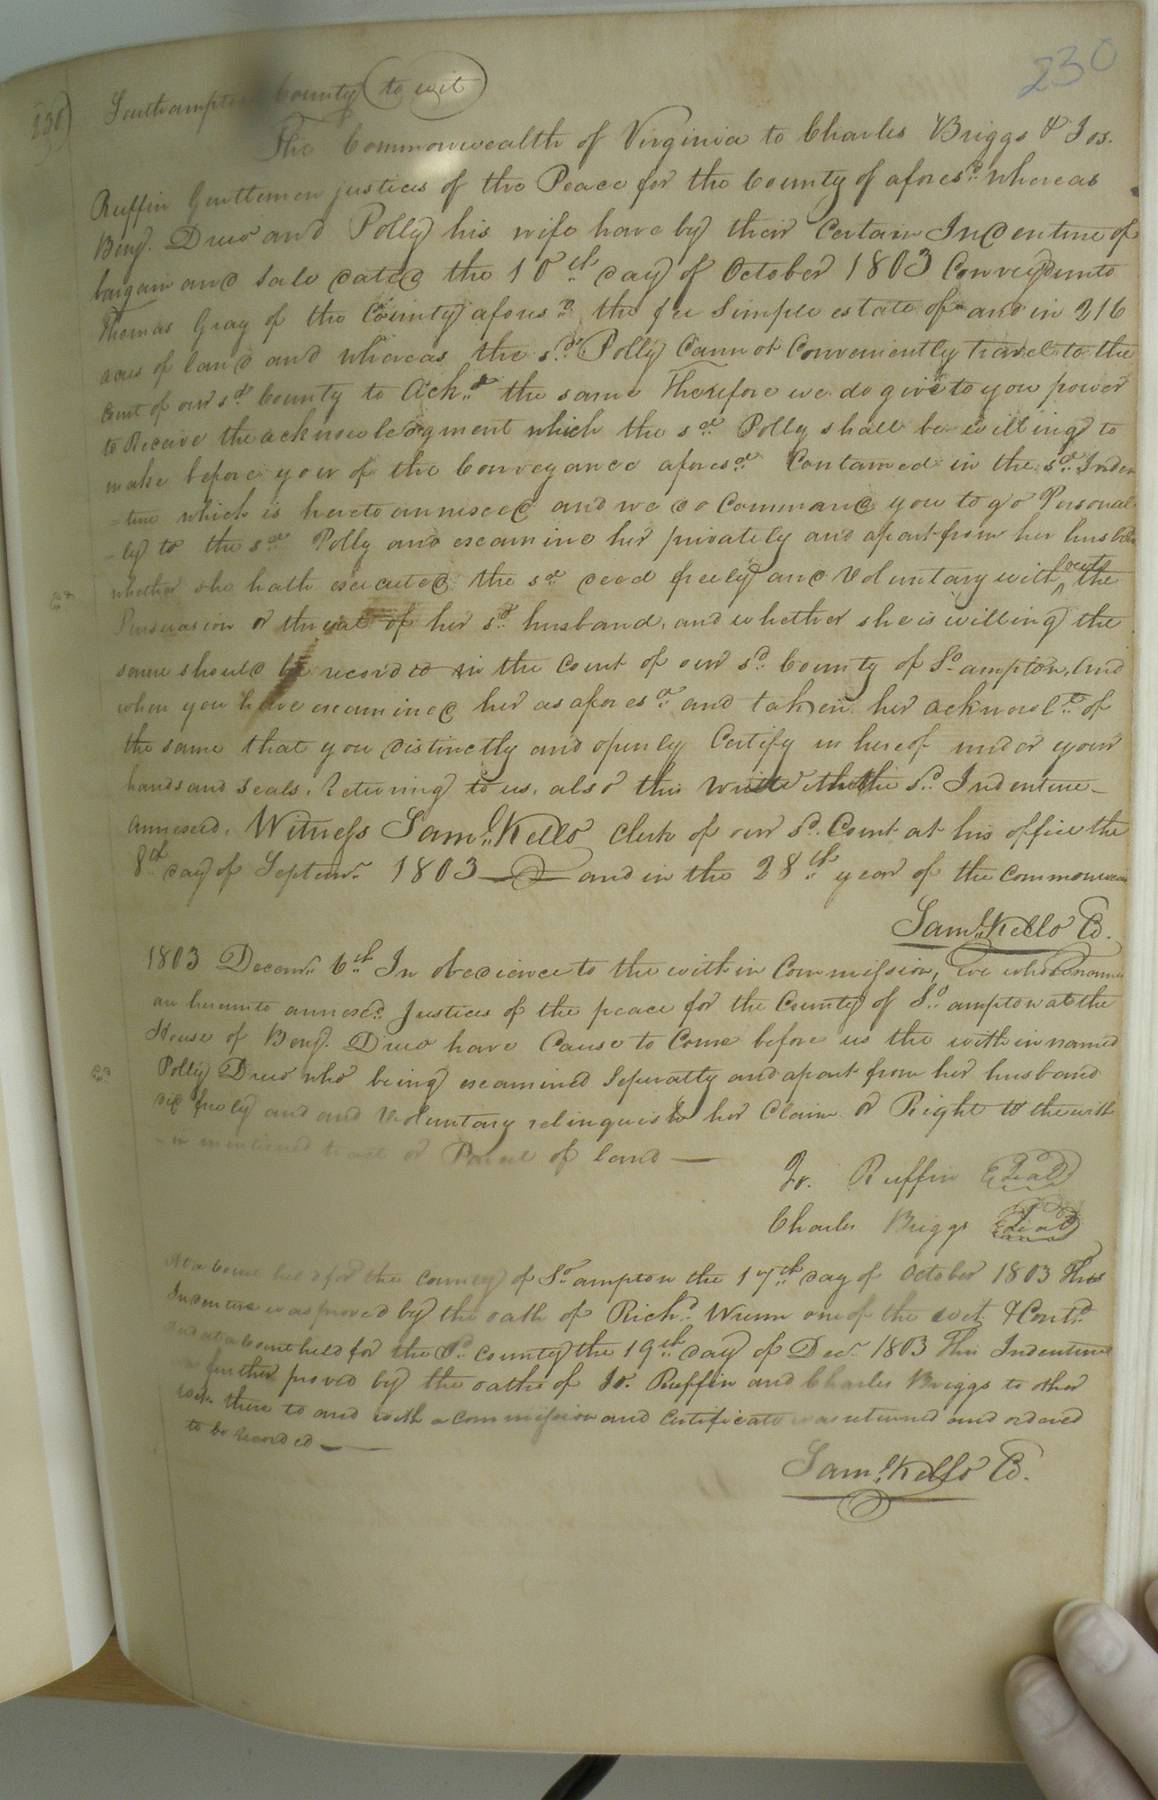 230
230)
Southampton County to wit
The Commonwealth of Virginia to Charles Briggs & Jos.
Ruffin Gentlemen justices of the Peace for the County of afores.d whereas
Benj. Drew and Polly his wife have by their Certain Indenture of
bargain and sale dated the 10th day of October 1803 Conveyd unto
Thomas Gray of the County afores.d the fee simple estate of and in 216
acres of land and whereas the s.d Polly Cannot Conveniently travel to the
Court of our s.d County to Ack.d the same Therefore we do give to you power
to Receive the acknowledgment which the s.d Polly shall be willing to
make before you of the Conveyance afores.d Contained in the s.d Inden
-ture which is hereto annexed and we do Command you to go Personal
-ly to the s.d Polly and examine her privately and apart from her husband
whether she hath executed the s.d deed freely and Voluntary with^out the
Persuasion or threat of her s.d husband, and whether she is willing the
same should be recorded in the Court of our s.d County of So.ampton, And
when you have examined her as afores.d and taken her acknowl.d of
the same that you distinctly and openly Certify us hereof under your
hands and seals, Returning to us, also this writ with the s.d Indenture
annexed, Witness Sam.l Kello Clerk of our s.d Court at his office the
8th day of Septem.r 1803 and in the 28th year of the Commonwea
Sam.l Kello C.
1803 Decem.r 6th In obedience to the within Commission, we whose names
are hereunto annexd. Justices of the peace for the County of So.ampton at the
House of Benj. Drew have Cause to Come before us the within named
Polly Drew who being examined Seperatly and apart from her husband
did freely and and Voluntary relinquish her Claim or Right to the with
-in mentioned tract or Parcel of land
Jo. Ruffin Seal
Charles Briggs Seal
At a Court held for the County of So.ampton the 17th day of October 1803 This
Indenture was proved by the oath of Rich.d Wrenn one of the wit. & Cont.d
And at a Court held for the s.d County the 19th day of Dec.r 1803 This Indenture
further proved by the oaths of Jo. Ruffin and Charles Briggs to other
there to and with a Commission and Certificate was returned and ordered
to be recorded
Sam.l Kello C.